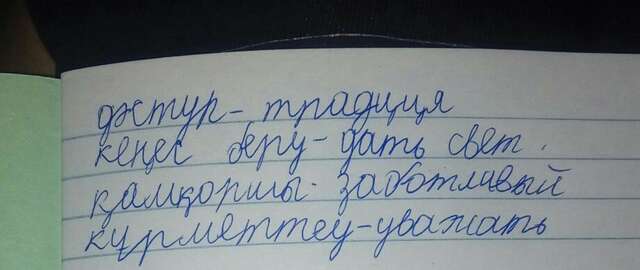 дәстүр - традиция
кеңес беру - дать свет.
қамқоршы - заботливый
құрметтеу - уважать